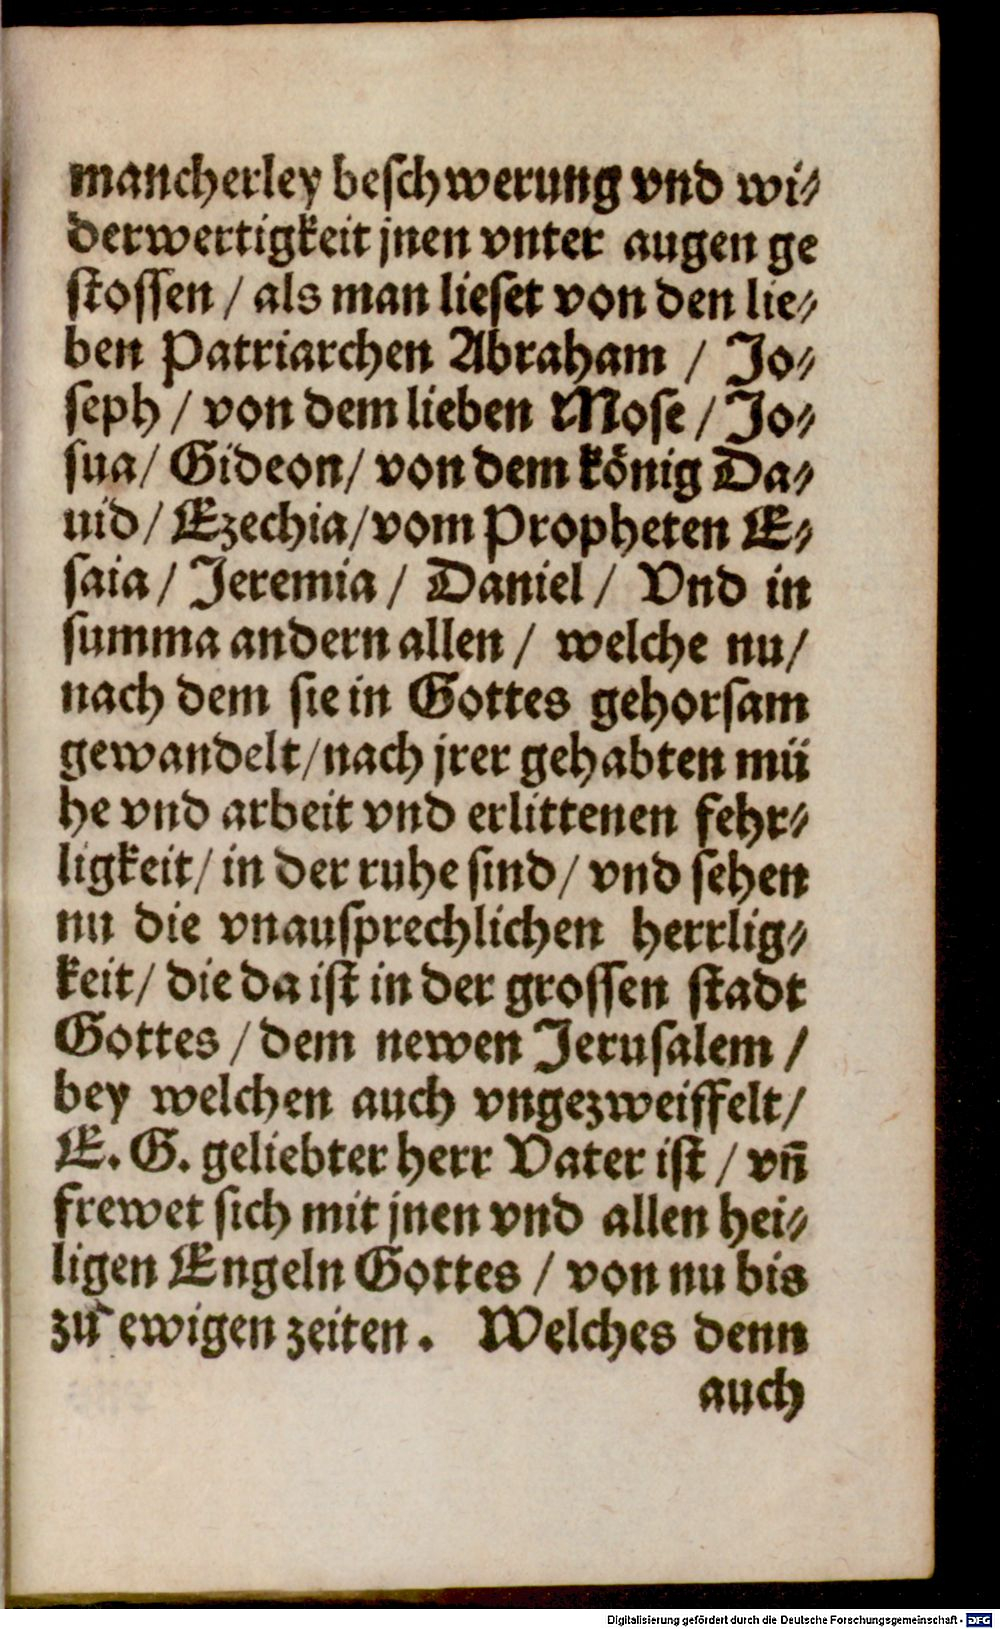 mancherley beschwerung vnd wi⸗
derwertigkeit jnen vnter augen ge
stossen / als man lieset von den lie⸗
ben Patriarchen Abraham / Jo⸗
seph / von dem lieben Mose / Jo⸗
sua / Gideon / von dem könig Da⸗
uid / Ezechia / vom Propheten E⸗
saia / Jeremia / Daniel / Vnd in
summa andern allen / welche nu /
nach dem sie in Gottes gehorsam
gewandelt / nach jrer gehabten mü
he vnd arbeit vnd erlittenen fehr⸗
ligkeit / in der ruhe sind / vnd sehen
nu die vnausprechlichen herrlig⸗
keit / die da ist in der grossen stadt
Gottes / dem newen Jerusalem /
bey welchen auch vngezweiffelt /
E. G. geliebter herr Vater ist / vn̄
frewet sich mit jnen vnd allen hei⸗
ligen Engeln Gottes / von nu bis
zu ewigen zeiten. Welches denn
auch
Digitalisierung gefördert durch die Deutsche Forschungsgemeinschaft - DFG